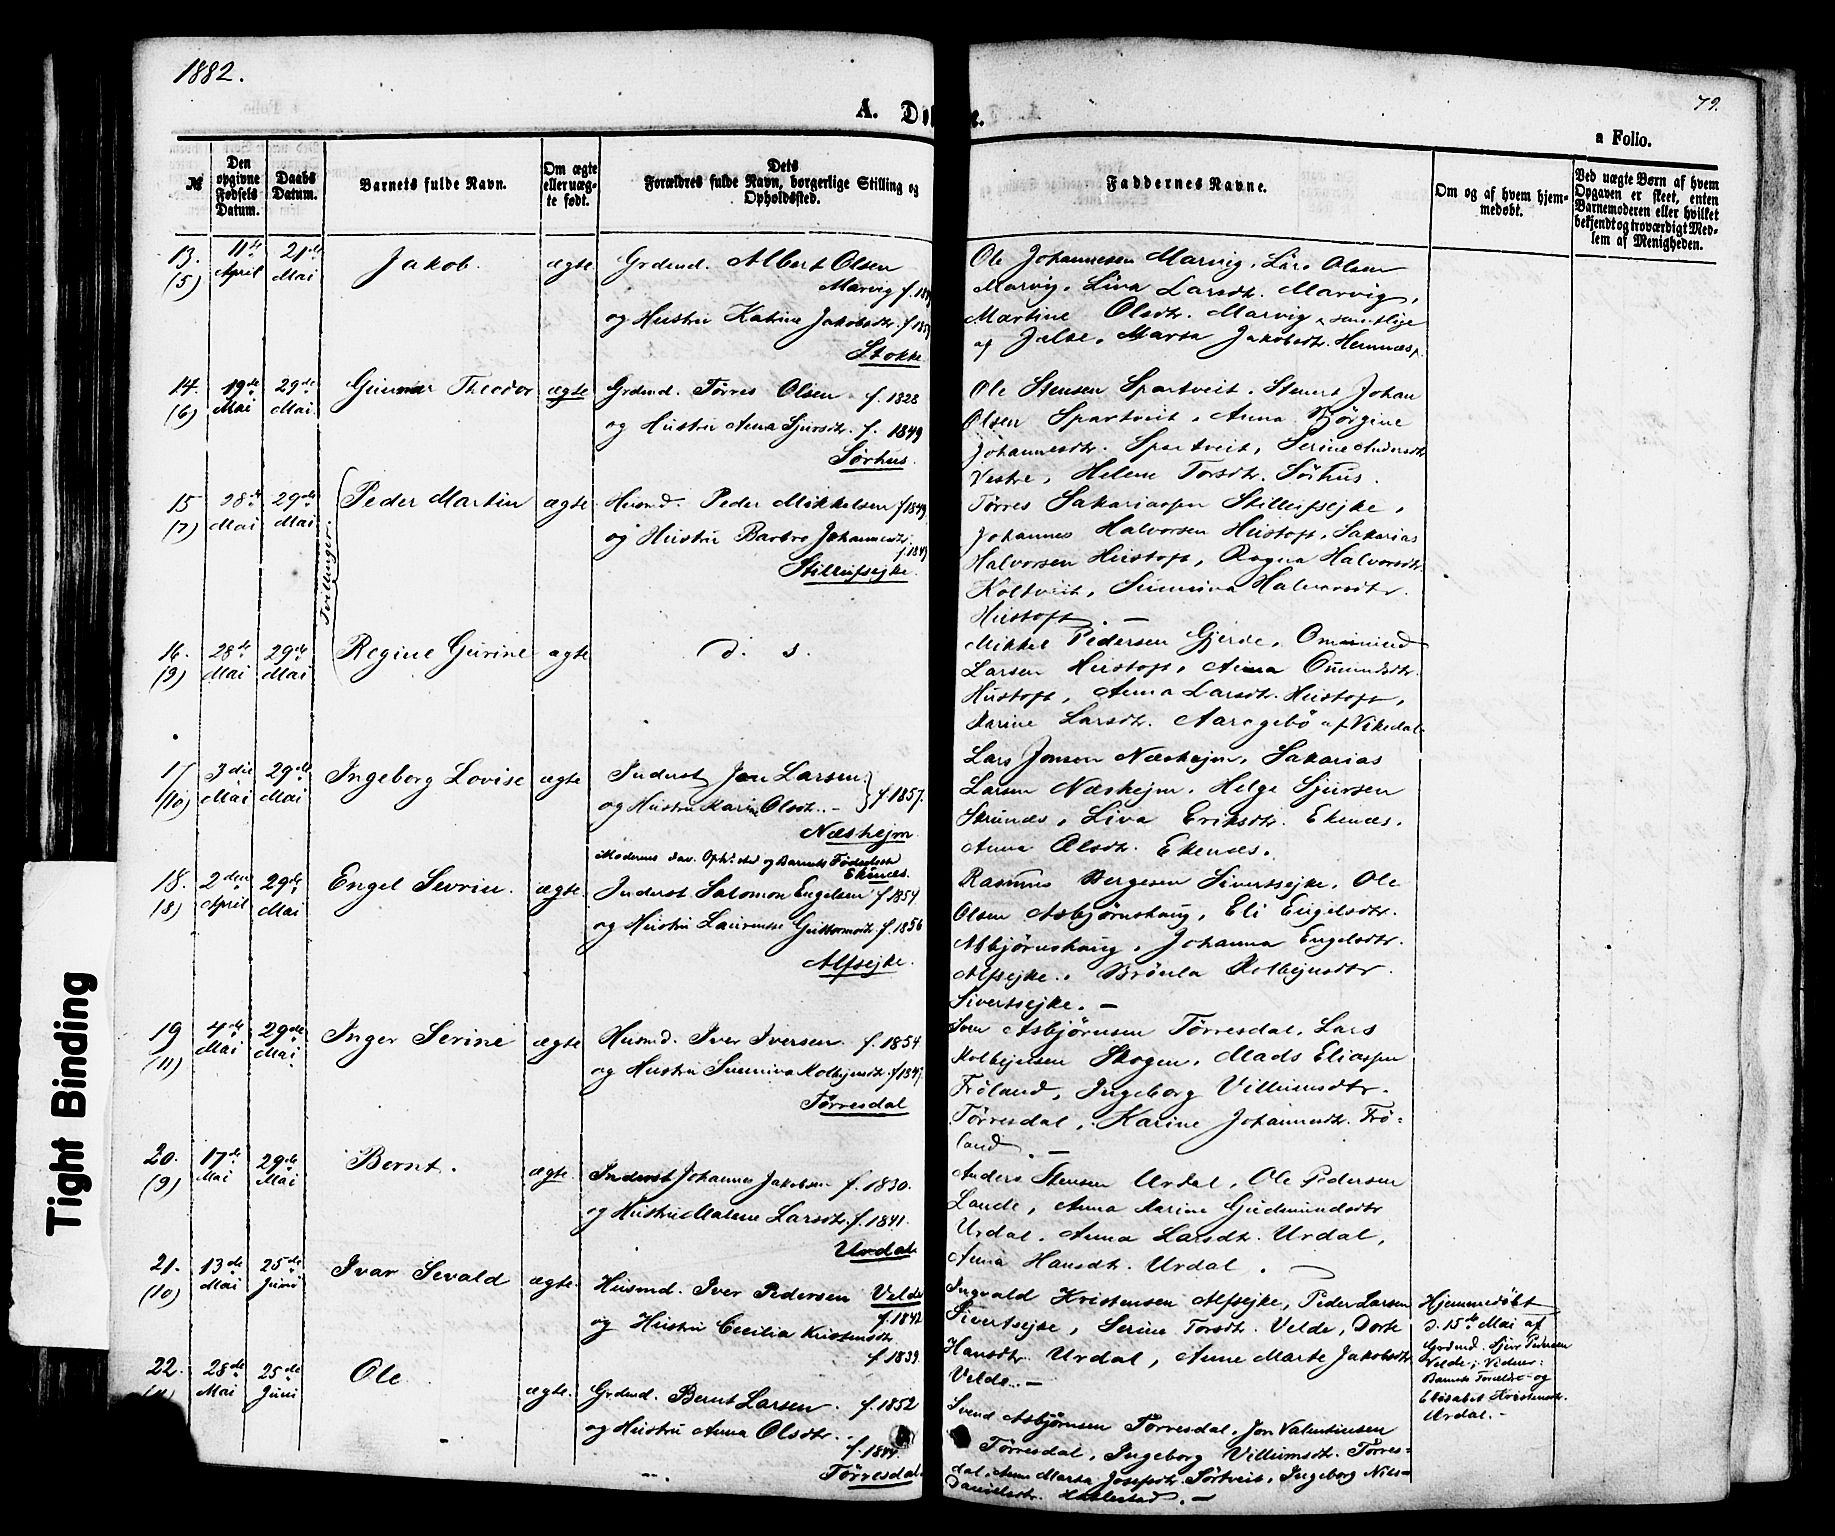 1882.
79.
A. Dø e.
a Folio.
№
Den opgivne Fødsels Datum.
Daabs Datum.
Barnets fulde Navn.
Om ægte eller uægte født.
Dets Forældres fulde Navn, borgerlige Stilling og Opholdssted.
Faddernes Navne.
Om og af hvem hjemmedøbt.
Ved uægte Børn af hvem Opgaven er skeet, enten Barnemoderen eller hvilket bekjendt og troværdigt Medlem af Menigheden.
13. (5) 11te April 21de Mai Jakob. ægte
Grdmd. Albert Olsen
Marvig f.
og Hustru Katrine Jakobsdtr. f.
Stokke
Ole Johannesen Marvig, Lars Olsen
Marvig, Liva Larsdtr. Marvig,
Martine Olsdtr. Marvig, samtlige
af Jelse, Marta Jakobsdtr.
14. (6) 19de Mai 29de Mai Gunnar Theodor ægte
Grdmd. Tørres Olsen f. 1828
og Hustru Anna Sjursdtr. f. 1849
Sørhus.
Ole Stensen Spartveit, Stenert Johan
Olsen Spartveit, Anna Bjørgine
Johannesdtr. Spartveit, Serine Andersdtr.
Vestre, Helene Torsdtr. Sörhus.
Tvillinger.
15 (7) 28de Mai 29de Mai Peder Martin ægte
Husmd. Peder Mikkelsen f 1849.
og Hustru Barbro Johannesdtr.
f. 1849
Stillufsejke.
Tørres Sakariassen Stillufsejke,
Johannes Halvorsen Hustoft, Sakarias
Halvorsen Hustoft, Ragna Halvorsdtr.
Koltveit, Sunniva Halvorsdtr.
Hustoft. —
16. (9) 28de Mai 29de Mai Regine Gurine ægte
d. s.
Mikkel Pedersen Gjerde, Ommund
Larsen Hustoft, Anna Omundsdtr.
Hustoft, Anna Larsdtr. Hustoft,
Karine Larsdtr. Aaragebö af Vikedal
17 (10) 3die Mai 29de Mai Ingeborg Lovise ægte
Inderst Jon Larsen
og Hustru Marie Olsdtr. — f. 1857.
Næshejm
Moderens dav. Opholdsted og Barnets Fødested
Ekenæs.
Lars Jonsen Næshejm, Sakarias
Larsen Næshejm, Helge Sjursen
Skrunæs, Liva Eriksdtr. Ekenæs,
Anna Olsdtr. Ekenæs.
18. (8) 2den April 29de Mai Engel Sevrin. ægte
Inderst. Salomon Engelsen f 1854
og Hustru Laurense Guttormsdtr. f. 1856
Alfsejke.
Rasmus Bergesen Sivertsejke, Ole
Olsen Asbjørnshaug, Eli Engelsdtr.
Asbjørnshaug, Johanna Engelsdtr.
Alfsejke, Brönla Kolbejnsdtr.
Sivertsejke. —
19 (11) 4de Mai 29de Mai Inger Serine ægte
Husmd. Iver Iversen. f. 1854.
og Hustru Sunniva Kolbejnsdtr. f 1847.
Tørresdal
Sven Asbjørnsen Tørresdal, Lars
Kolbejnsen Skogen, Mads Eliassen
Fröland, Ingeborg Villumsdtr.
Tørresdal, Karine Johannesdtr. Frö-
land. —
20. (9) 17de Mai 29de Mai Bernt. ægte.
Inderst Johannes Jakobsen f. 1830.
og Hustru Malene Larsdtr. f. 1841.
Urdal.
Anders Stensen Urdal, Ole Pedersen
Lande, Anna Karine Gudmundsdtr
Urdal, Anna Larsdtr. Urdal,
Anna Hansdtr. Urdal. —
21. (10) 13de Mai 25de Juni Ivar Sevald ægte.
Husmd. Iver Pedersen Velde
f. 1842
og Hustru Cecilia Kristensdtr
f. 1839.
Ingvald Kristensen Alfsejke, Peder Larsen
Sivertsejke, Serine Torsdtr. Velde, Dorte
Hansdtr. Urdal, Anne Marte Jakobsdtr.
Velde. —
Hjemmedøbt
d. 15de Mai af
Grdmd. Sjur Pedersen
Velde; Vidner:
Barnets Forældre og
Elisabet Kristensdtr.
Urdal. —
22. 28de Mai 25de Juni Ole. ægte.
Grdmd. Bernt Larsen. f. 1852
og Hustru Anna Olsdtr.
f. 1844.
Tørresdal.
Svend Asbjørnsen Tørresdal, Jon Valentinsen
Tørresdal, Ingeborg Villumsdtr. Tørres-
dal, Anne Marta Josefsdtr. Sörtveit, Ingeborg Nils-
Danielsdtr. Hallestad. —
Tight Binding